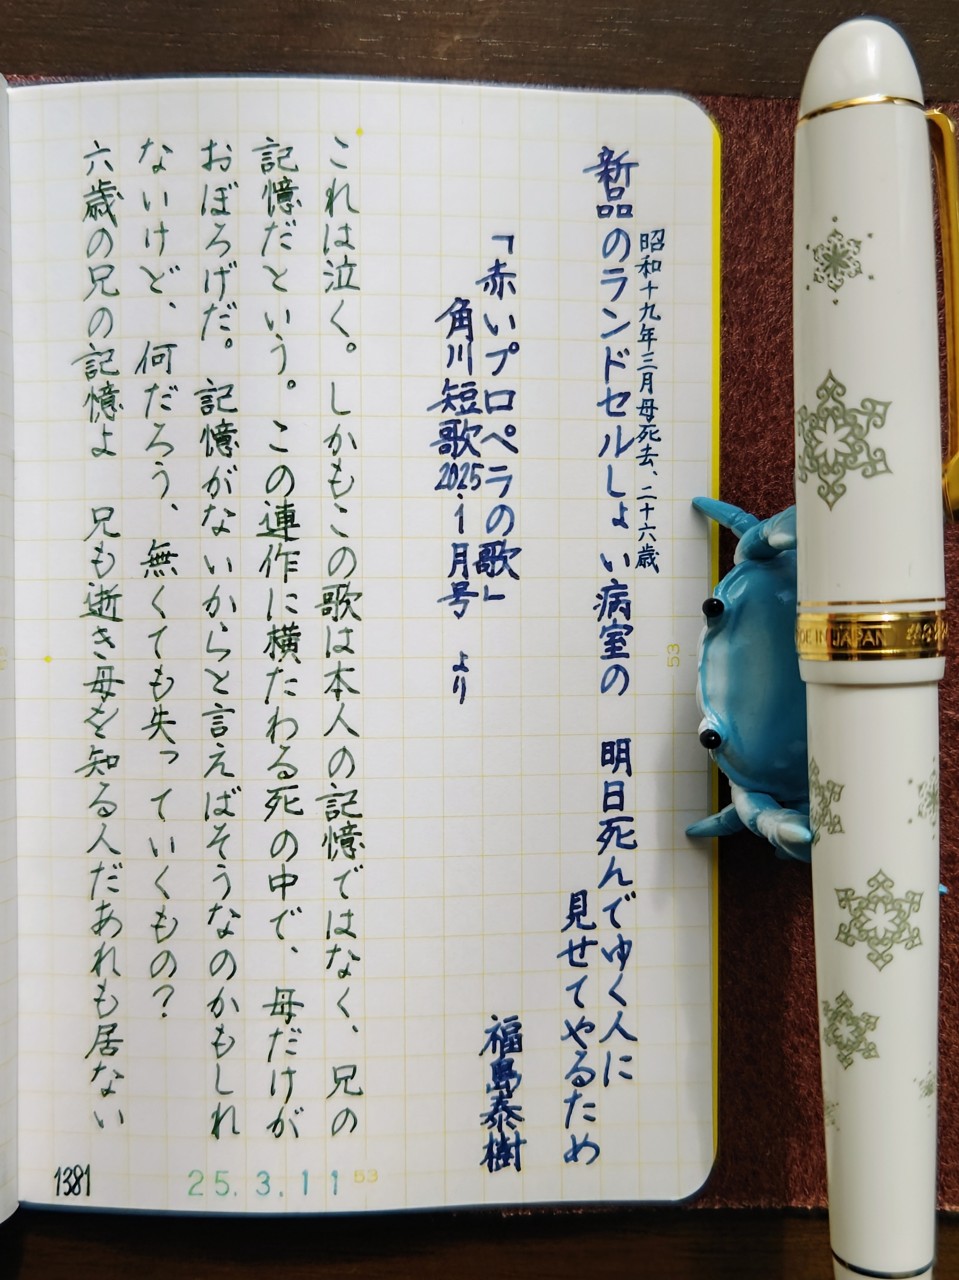 昭和十九年三月母死去、二十六歳
新品のランドセルしょい病室の　明日死んでゆく人に
見せてやるため
「赤いプロペラの歌」
角川短歌2025.1月号　より
福島泰樹
これは泣く。しかもこの歌は本人の記憶ではなく、兄の
記憶だという。この連作に横たわる死の中で、母だけが
おぼろげだ。記憶がないからと言えばそうなのかもしれ
ないけど、何だろう、無くても失っていくもの？
六歳の兄の記憶よ　兄も逝き母を知る人だあれも居ない
1381
25.3.11
53
53
MADE IN JAPAN